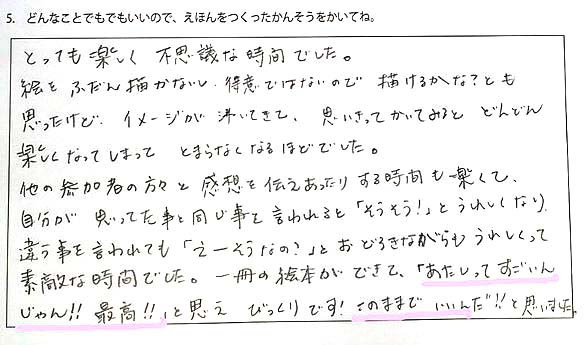 5. どんなことでもでもいいので、えほんをつくったかんそうをかいてね。
とっても楽しく 不思議な時間でした。
絵を ふだん描かないし、得意ではないので 描けるかな?とも
思ったけど、イメージが 沸いてきて、思いきってかいてみると どんどん
楽しくなってしまって とまらなくなるほどでした。
他の参加者の方々と 感想を伝えあったりする時間も楽くて、
自分が 思ってた事と同じ事を言われると「そうそう!」とうれしくなり
違う事を言われても「えーそうなの?」とおどろきながらもうれしくって
素敵な時間でした。一冊の絵本ができて、「あたしってすごいん
じゃん!! 最高!!」と思え びっくりです! このままで いいんだ!!と思いました。